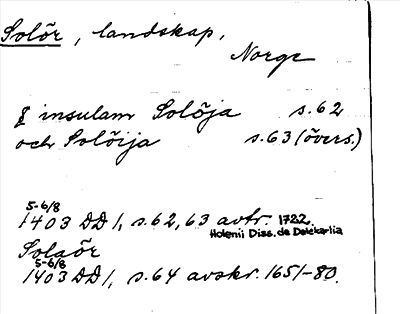 Solör, landskap,
Norge
§ insulam Solöja s. 62
och Solöija s. 63 (övers.)
5-6/8
1403 DD 1, s. 62, 63 avtr. 1722.
Holenii Diss. de Dalekarlia
Solaör
5-6/8
1403 DD 1, s. 64 avskr. 1651-80.